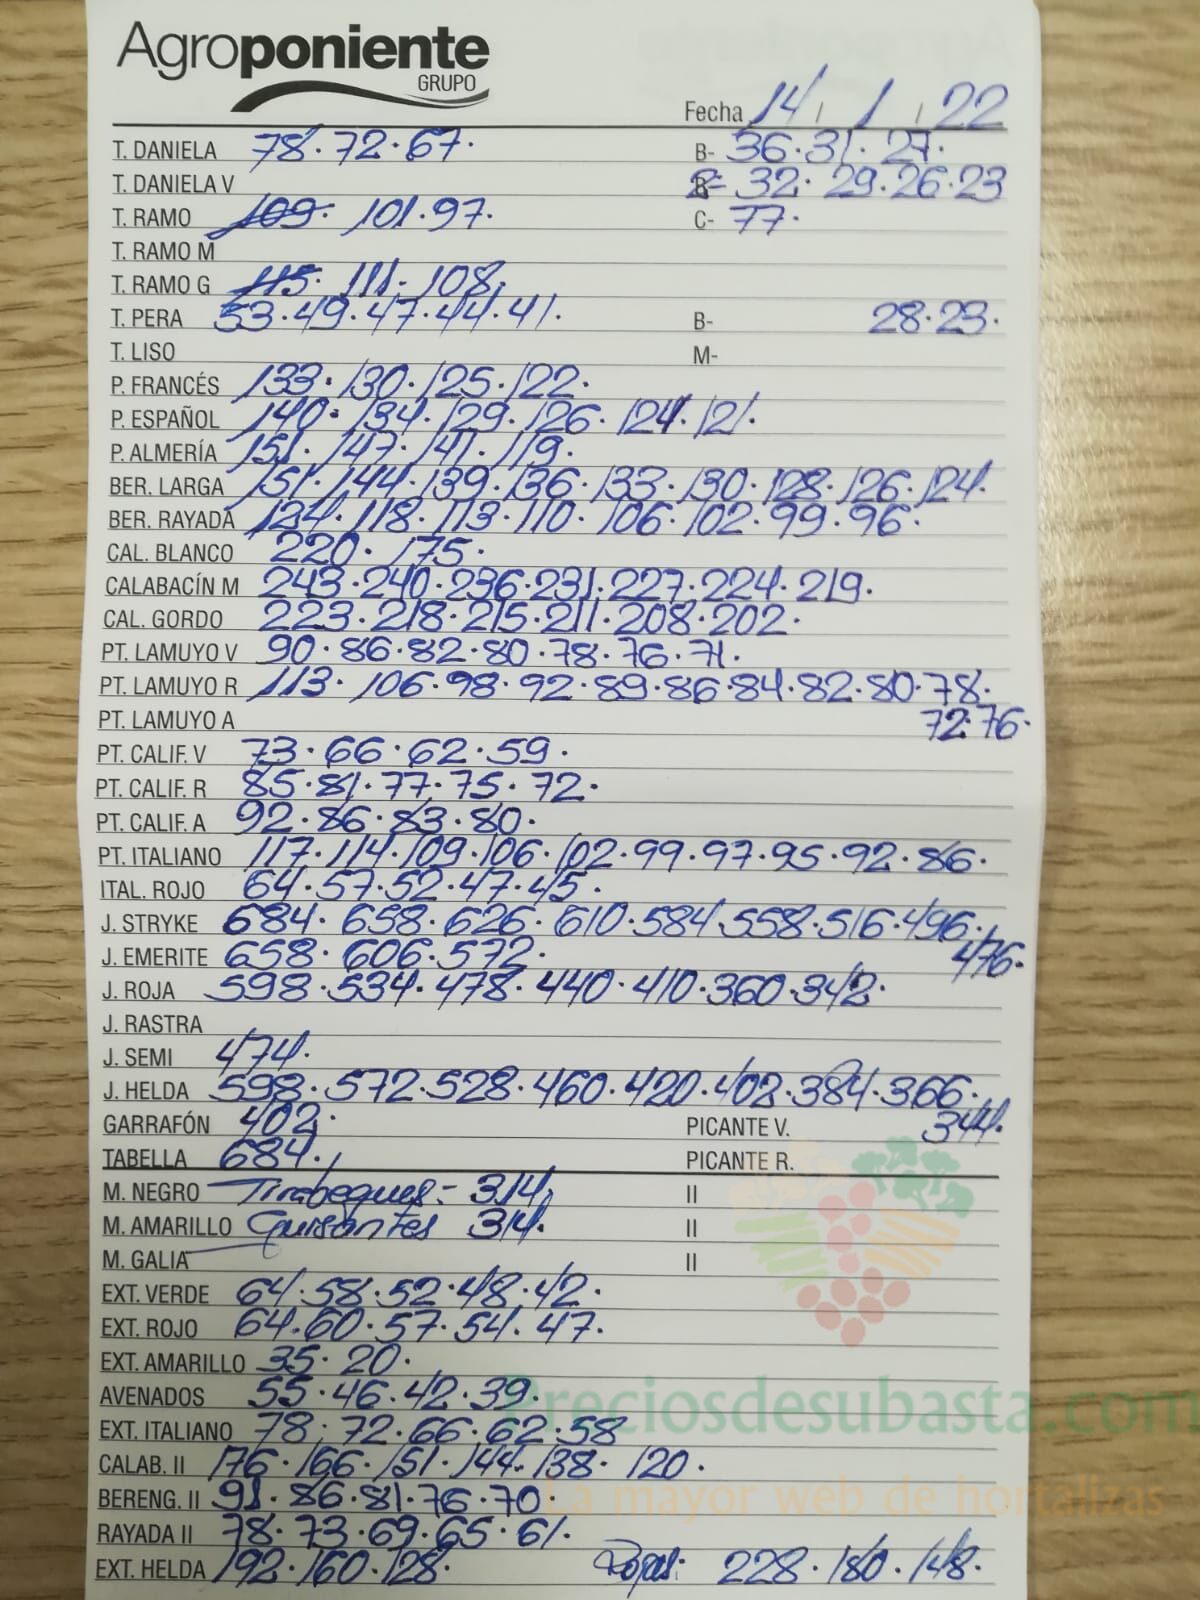 Agroponiente
GRUPO
Fecha 14 / 1 / 22
T. DANIELA 78·72·67· B- 36·31·27·
T. DANIELA V 32·29·26·23
T. RAMO 109· 101·97· C- 77·
T. RAMO M
T. RAMO G 115· 111· 108·
T. PERA 53·49·47·44·41· B- 28·23·
T. LISO M-
P. FRANCÉS 133·130·125·122·
P. ESPAÑOL 140·134·129·126·124·121·
P. ALMERÍA 151·147·141·119·
BER. LARGA 151·144·139·136·133·130·128·126·124·
BER. RAYADA 124·118·113·110·106·102·99·96·
CAL. BLANCO 220·175·
CALABACÍN M 243·240·236·231·227·224·219·
CAL. GORDO 223·218·215·211·208·202·
PT. LAMUYO V 90·86·82·80·78·76·71·
PT. LAMUYO R 113·106·98·92·89·86·84·82·80·78·
PT. LAMUYO A 72·76·
PT. CALIF. V 73·66·62·59·
PT. CALIF. R 85·81·77·75·72·
PT. CALIF. A 92·86·83·80·
PT. ITALIANO 117·114·109·106·102·99·97·95·92·86·
ITAL. ROJO 64·57·52·47·45·
J. STRYKE 684·658·626·610·584·558·516·496·
J. EMERITE 658·606·572· 476·
J. ROJA 598·534·478·440·410·360·342·
J. RASTRA
J. SEMI 474·
J. HELDA 598·572·528·460·420·402·384·366·
GARRAFÓN 402· PICANTE V. 344·
TABELLA 684· PICANTE R.
M. NEGRO Tirabeques:- 314, II
M. AMARILLO Guisantes 314· II
M. GALIA II
EXT. VERDE 64·58·52·48·42·
EXT. ROJO 64·60·57·54·47·
EXT. AMARILLO 35·20·
AVENADOS 55·46·42·39·
Preciosdesubasta.com
EXT. ITALIANO 78·72·66·62·58
CALAB. II 176·166·151·144·138·120·
BERENG. II 91·86·81·76·70·
La mayor web de hortalizas
RAYADA II 78·73·69·65·61·
EXT. HELDA 192·160·128· Rojas: 228·180·148·